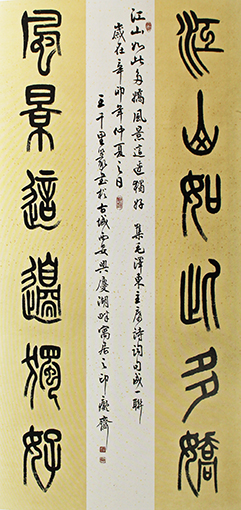 江山如此多嬌
風景這邊獨好
江山如此多嬌風景這邊獨好 集毛澤東主席詩詞句成一聯
歲在辛卯年仲夏之日
王千里篆書於古城西安興慶湖畔寓居之印癡齋